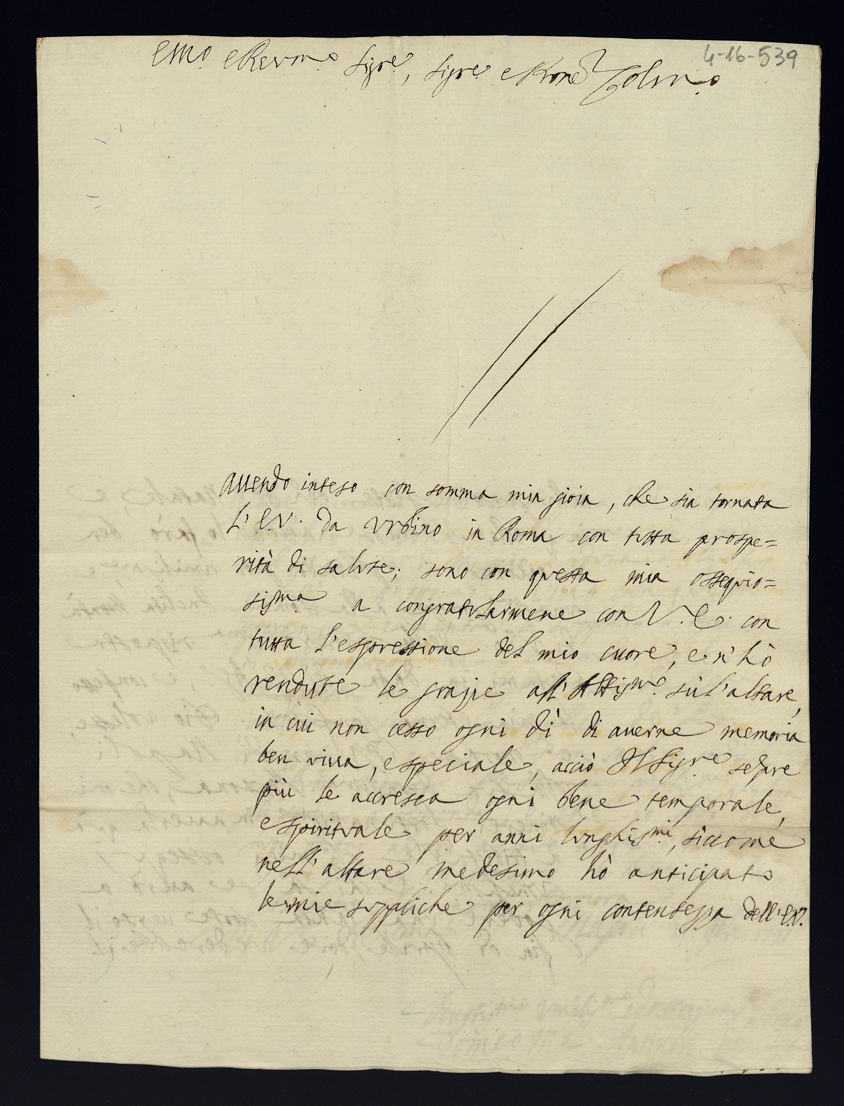 4-16-539
Emo e Revmo Sigre, Sigre e Prone Colmo
Avendo inteso con somma mia gioia, che sia tornata
l'E.V. da Urbino in Roma con tutta prospe=
rità di salute; sono con questa mia ossequio=
sisma a congratularmene con V.E. con
tutta l'espressione del mio cuore, e n'hò
rendute le grazie all'Altismo sù l'altare,
in cui non cesso ogni dì di averne memoria
ben viva, e speciale, acciò Il Sigre sempre
più le accresca ogni bene temporale,
e spirituale per anni lunghismi, siccome
nell'altare medesimo hò anticipato
le mie suppliche per ogni contentezza dell'E.V.